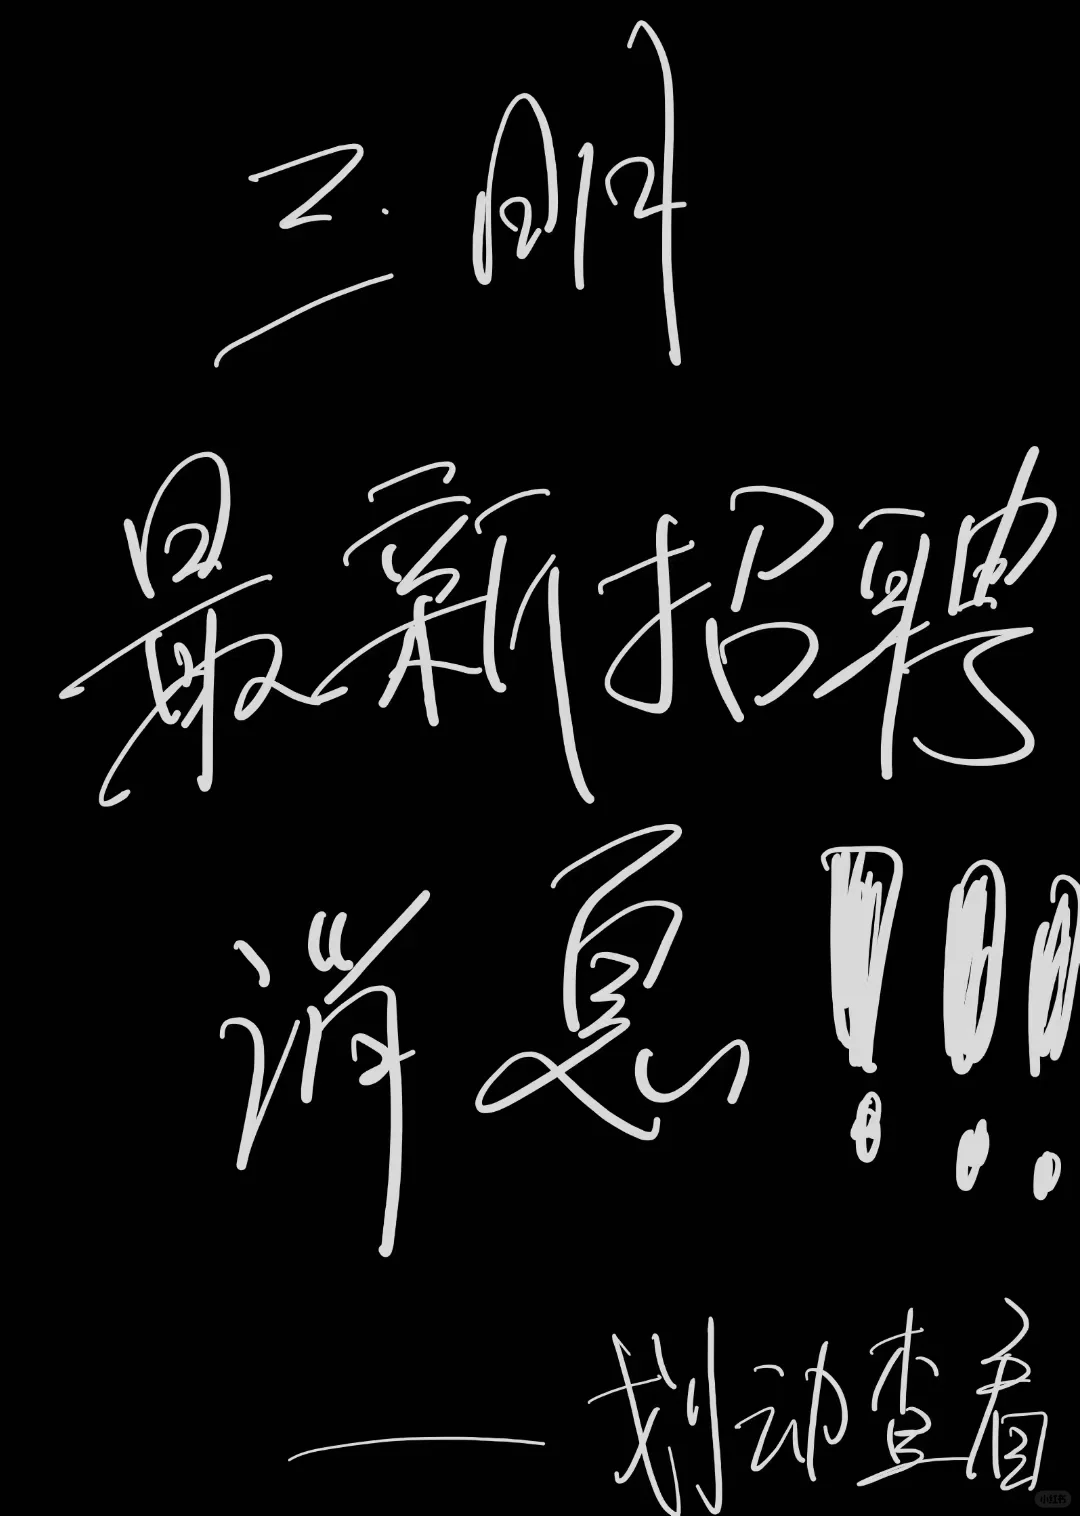 三明
最新招聘
消息!!!
——划动查看
小红书